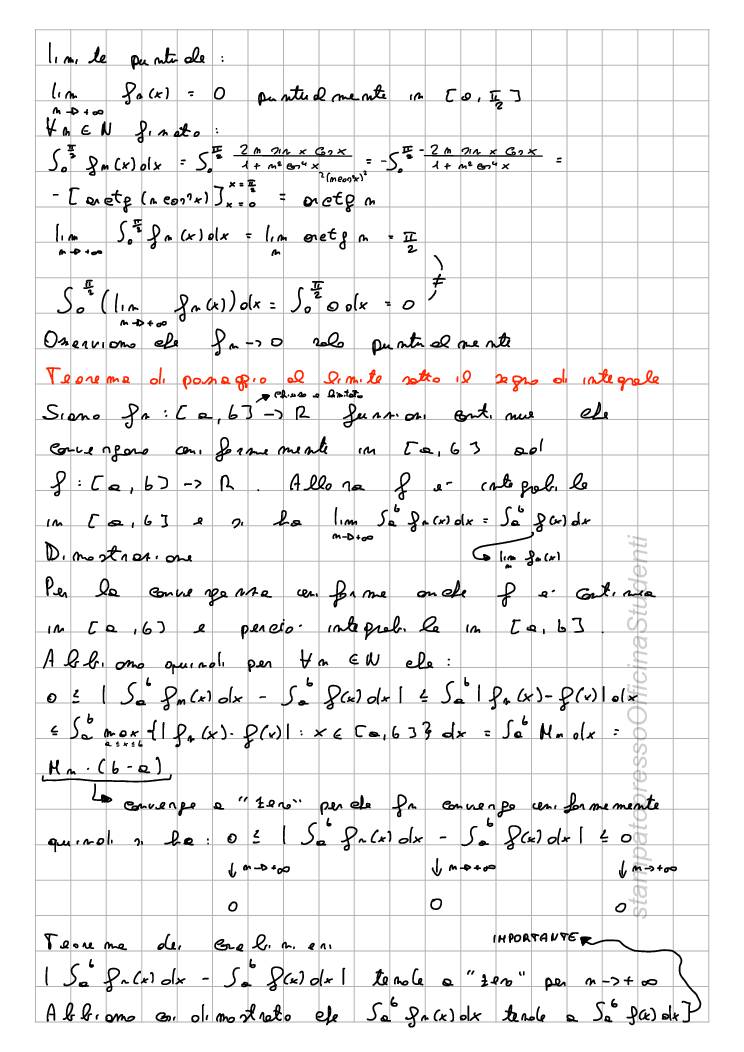 limite puntuale :
lim n→+∞ fn(x) = 0 puntualmente in [0, π/2]
∀n ∈ N fissato :
∫₀^π/2 fn(x) dx = ∫₀^π/2 (2n sin x cos x)/(1 + n² cos⁴x) = -∫₀^π/2 (-2n sin x cos x)/(1 + n² cos⁴x) =
²(n cos²x)²
- [arctg (n cos²x)]_{x=0}^{x=π/2} = arctg n
lim n→+∞ ∫₀^π/2 fn(x) dx = lim n arctg n = π/2
≠
∫₀^π/2 (lim n→+∞ fn(x)) dx = ∫₀^π/2 0 dx = 0
Osserviamo che fn → 0 solo puntualmente
Teorema di passaggio al limite sotto il segno di integrale
→ chiuso e limitato
Siano fn : [a, b] → R funzioni continue che
convergono uniformemente in [a, b] ad
f : [a, b] → R . Allora f e' integrabile
in [a, b] e si ha lim n→+∞ ∫ₐᵇ fn(x) dx = ∫ₐᵇ f(x) dx
Dimostrazione → lim n fn(x)
Per la convergenza uniforme anche f e' continua
in [a, b] e percio' integrabile in [a, b] .
Abbiamo quindi per ∀n ∈ N che :
0 ≤ | ∫ₐᵇ fn(x) dx - ∫ₐᵇ f(x) dx | ≤ ∫ₐᵇ | fn(x) - f(x) | dx
≤ ∫ₐᵇ max a≤x≤b {| fn(x) - f(x) | : x ∈ [a, b]} dx = ∫ₐᵇ Mn dx =
Mn · (b - a)
↳ converge a "zero" perche fn converge uniformemente
quindi si ha : 0 ≤ | ∫ₐᵇ fn(x) dx - ∫ₐᵇ f(x) dx | ≤ 0
↓ n→+∞ ↓ n→+∞ ↓ n→+∞
0 0 0
Teorema dei carabinieri IMPORTANTE
| ∫ₐᵇ fn(x) dx - ∫ₐᵇ f(x) dx | tende a "zero" per n → + ∞
Abbiamo cosi dimostrato che ∫ₐᵇ fn(x) dx tende a ∫ₐᵇ f(x) dx]
stampatopressoOfficinaStudenti